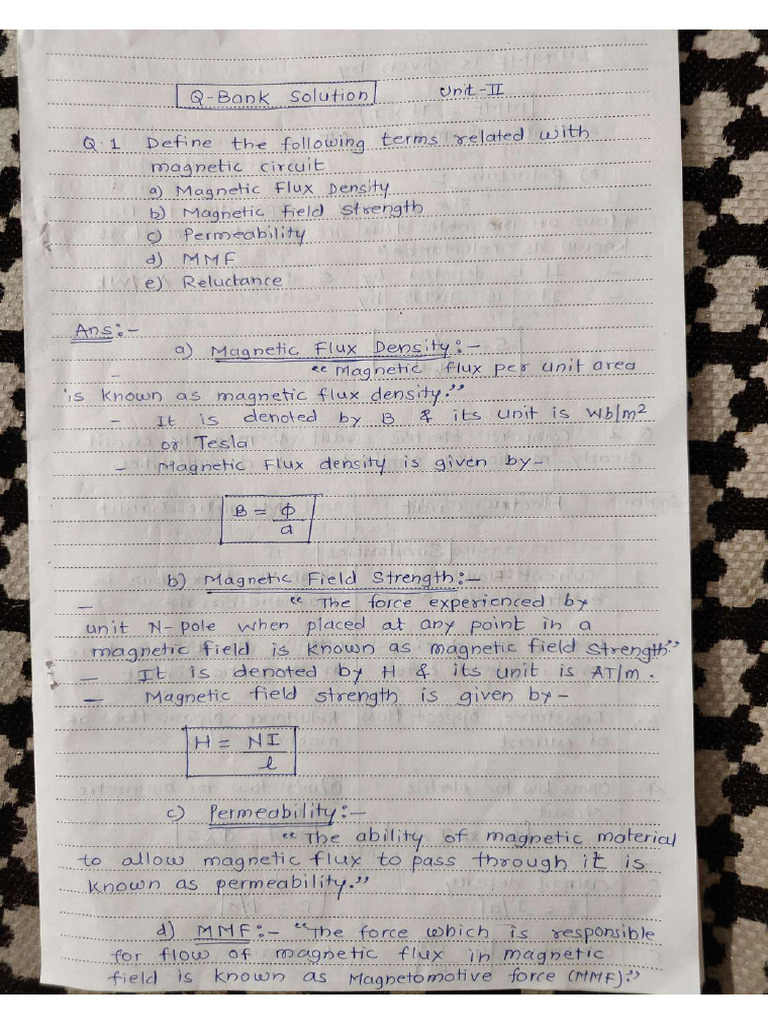 Q-Bank Solution Unit-II
Q.1 Define the following terms related with
magnetic circuit
a) Magnetic Flux Density
b) Magnetic field strength
c) Permeability
d) MMF
e) Reluctance
Ans:-
a) Magnetic Flux Density:-
- "Magnetic flux per unit area
is known as magnetic flux density."
- It is denoted by B & its unit is Wb/m²
or Tesla
- Magnetic Flux density is given by-
B = Φ/a
b) Magnetic Field Strength:-
- "The force experienced by
unit N-pole when placed at any point in a
magnetic field is known as magnetic field strength"
- It is denoted by H & its unit is AT/m.
- Magnetic field strength is given by-
H = NI/l
c) Permeability:-
"The ability of magnetic material
to allow magnetic flux to pass through it is
known as permeability."
d) MMF:- "The force which is responsible
for flow of magnetic flux in magnetic
field is known as Magnetomotive force (MMF)."